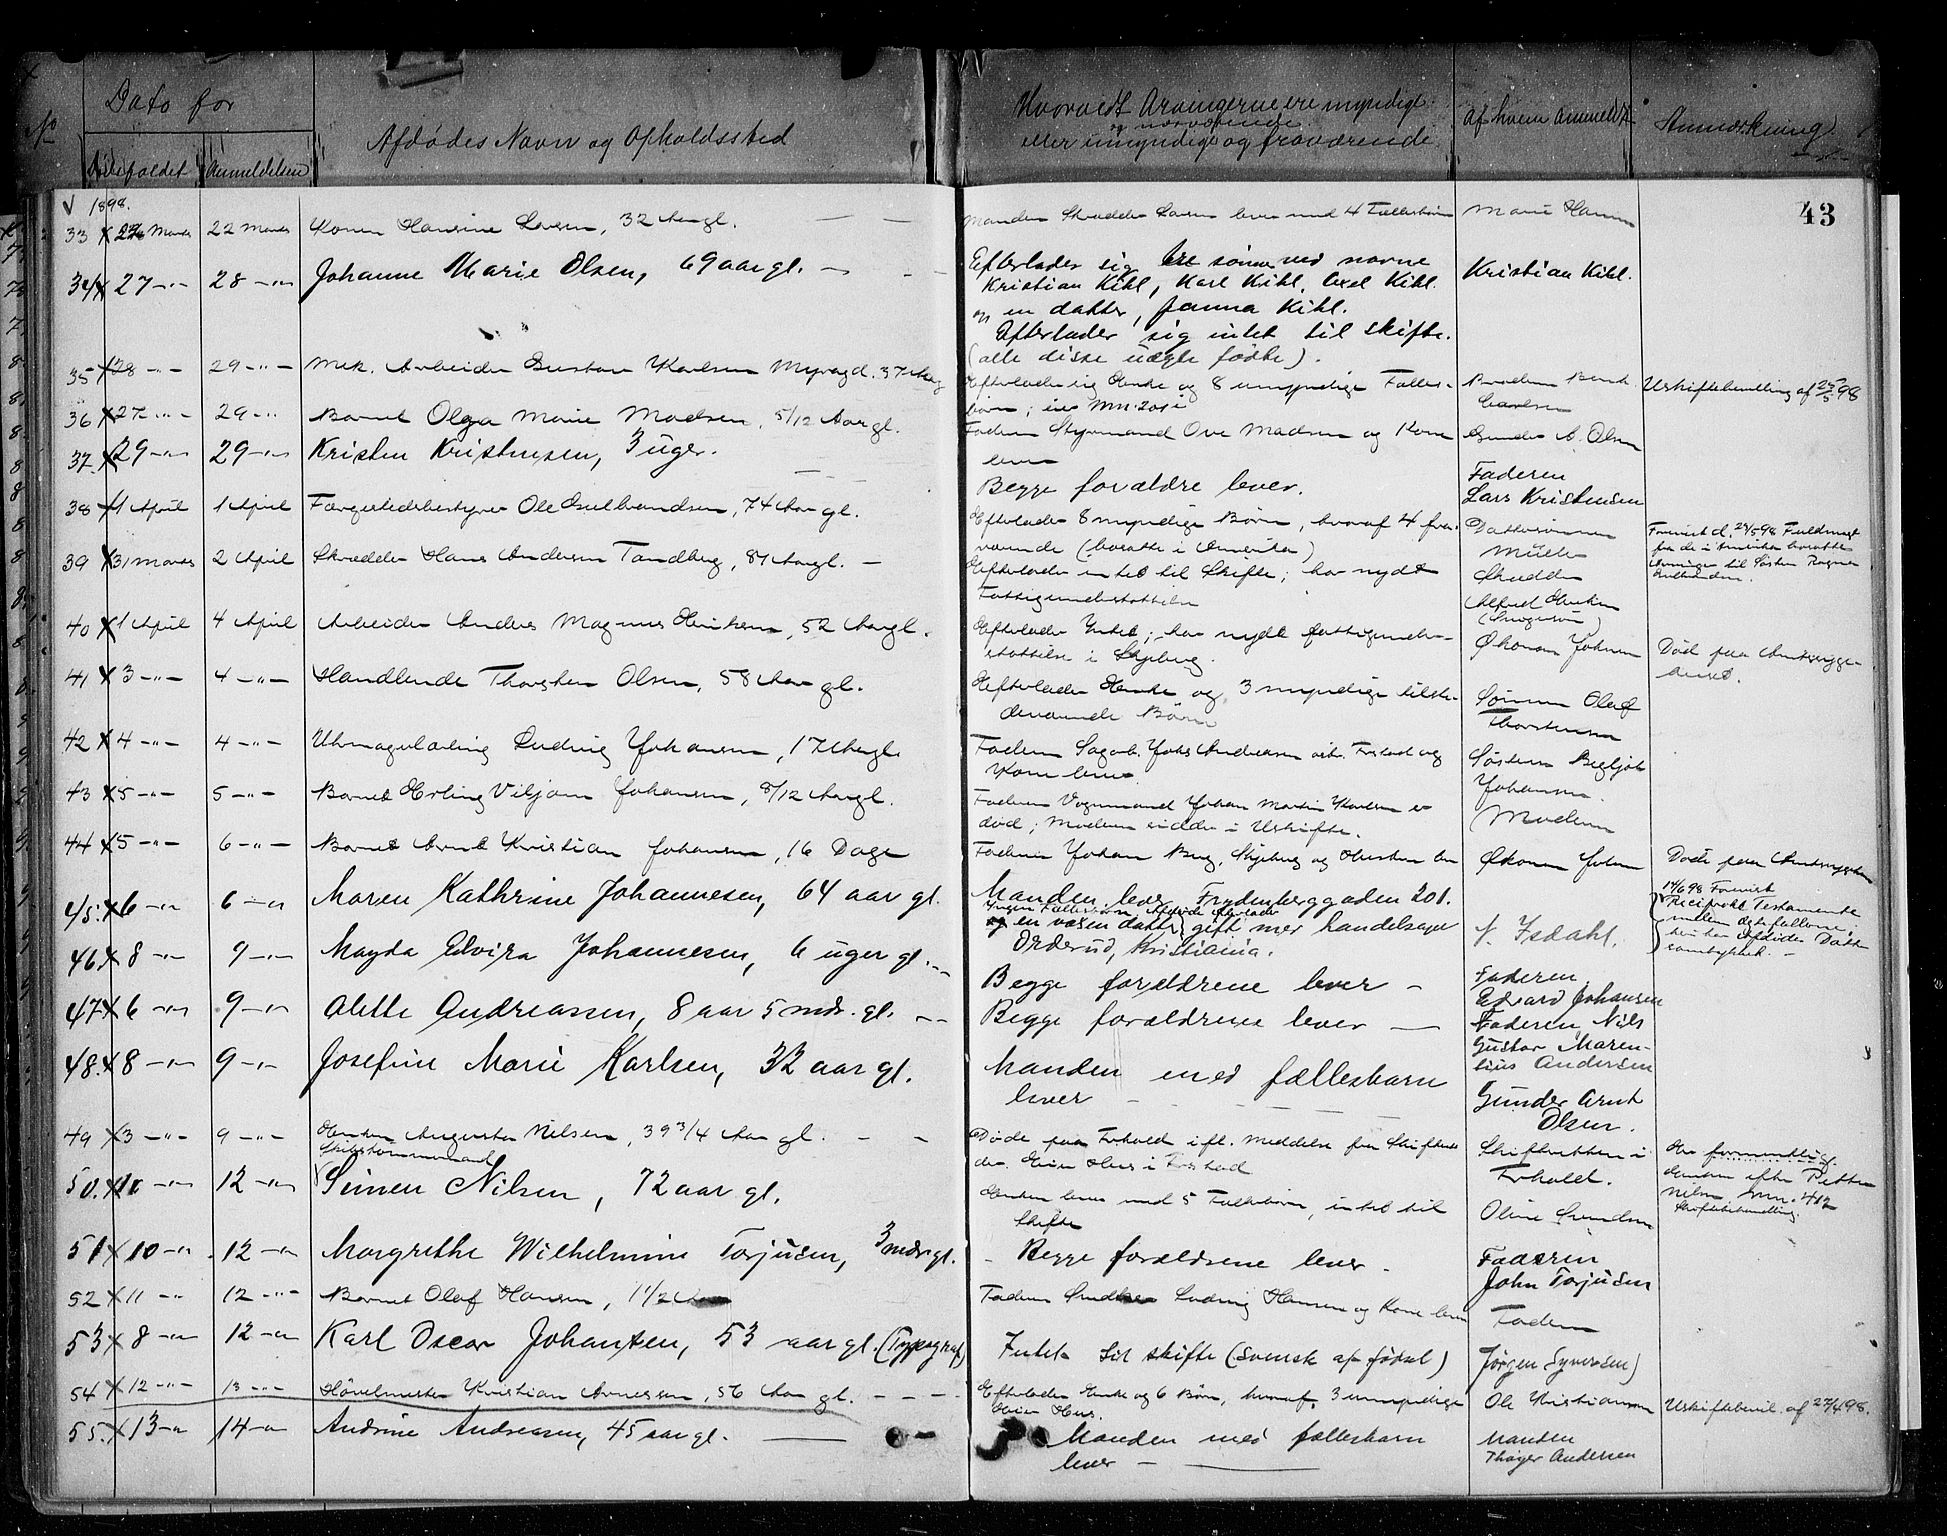 Dato for
No
Dødsfaldet Anmeldelsen
Afdødes Navn og Opholdssted
Hvorvidt Arvingerne ere myndige
eller umyndige og nærværende og fraværende
af hvem anmeldt
Anmærkning
43
1898.
33 22 Marts 22 Marts Konen Hansine Larsen, 32 Aar gl. Manden Skrædder Larsen lever med 4 Fællesbørn Marie Hansen
34 27 -"- 28 -"- Johanne Marie Olsen, 69 aar gl. Efterlader sig tre sønner ved navne Kristian Kihl.
Kristian Kihl, Karl Kihl, Axel Kihl.
og en datter, Janna Kihl.
Efterlader sig intet til skifte.
(alle disse uægte fødte).
35 28 -"- 29 -"- Mek. Arbeider Gustav Karlsen Myragd. 37 Aar g Efterlader sig Enke og 8 umyndige Fælles- Uskiftebevilling af 25/5 98
børn; eier Mn. 201
36 27 -"- 29 -"- Barnet Olga Marie Madsen, 5/12 Aar gl. Faderen Styrmand Ove Madsen og Kone Gunder A. Olsen
lever
37 29 -"- 29 -"- Kristen Kristensen, 3 uger. Begge forældre lever. Faderen
Lars Kristensen
38 1 April 1 April Færgestedsbestyrer Ole Gulbrandsen, 74 Aar gl. Efterlader 8 myndige Børn, hvoraf 4 fra-
værende (bosatte i Amerika)
Forevist d. 24/5 98 Fuldmagt
fra de i Amerika bosatte
Arvinger til Søsteren Ragna
Gulbrandsen.
39 31 Marts 2 April Skrædder Hans Andersen Tandberg, 81 Aar gl. Efterlader intet til Skifte; har nydt
Fattigunderstøttelse
40 1 April 4 April Arbeider Anders Magnus Henriksen, 52 Aar gl. Efterlader Intet; har nydt fattigunder-
støttelse i Skjeberg. Økonom Johnsen Død paa Amtssyge-
huset.
41 3 -"- 4 -"- Handlende Thorsten Olsen, 58 Aar gl. Efterlader Enke og 3 myndige tilste-
deværende Børn Sønnen Olaf
Thorstensen
42 4 -"- 4 -"- Uhrmagerlærling Ludvig Johansen, 17 Aar gl. Faderen Sagarb. Johs Andreasen og
Kone lever Søsteren Bergljot
Johansen.
43 5 -"- 5 -"- Barnet Erling Viljam Johansen, 8/12 Aar gl. Faderen Vognmand Johan Martin Karlsen er
død; Moderen sidder i Uskifte. Moderen
44 5 -"- 6 -"- Barnet Arnt Kristian Johansen, 16 Dage Faderen Johan Berg, Skjeberg og Hustru lever Økonom Johnsen Døde paa Amtssygehuset
45. 6 -"- 6 -"- Maren Kathrine Johannesen, 64 aar gl. Manden lever Frydenberggaden 201.
Ingen Fællesbørn, Afdøde efterlader
en voksen datter gift med handelsager
Orderud, Kristiania. N. Isdahl.
14/6 98 Forevist
Reciprokt Testamente
mellem ægtefællerne,
hvortil Afdødes Datter
samtykket.
46. 8 -"- 9 -"- Magda Elvira Johannesen, 6 uger gl. Begge forældrene lever - Faderen
Edvard Johansen
47 6 -"- 9 -"- Alette Andreassen, 8 aar 5 mdr. gl. Begge forældrene lever Faderen, Nils
Gustav Maren-
lius Andersen
48. 8 -"- 9 -"- Josefine Marie Karlsen, 32 aar gl. Manden med fællesbarn
lever Gunder Arnt
Olsen.
49 3 -"- 9 -"- Enken Augusta Nilsen, 39 3/4 Aar gl. Døde paa Trøhold ifl. meddelse fra Skifteret
der. Eier Hus i Skiftretten i
Trøhold. Har formentlig
Enken efter Petter
Nilsen, Mn. 412
Skiftebehandling.
50. 10 -"- 12 -"- Simen Nilsen, 72 aar gl. Enken lever med 5 Fællesbørn, intet til
Skifte Oline Svendsen
51 10 -"- 12 -"- Margrethe Wilhelmine Torjusen, 3 mdr. gl. Begge forældrene lever - Faderen
John Torjusen
52 11 -"- 12 -"- Barnet Olaf Hansen, 1 1/2 Aar Faderen Ludvig Hansen og Kone lever Faderen
53 8 -"- 12 -"- Karl Oscar Johansen, 53 aar gl. (Typograf) Intet til skifte (svensk af fødsel) Jørgen Syversen)
54 12 -"- 13 -"- Høvelmester Kristian Arnesen, 56 Aar gl. Efterlader Enke og 6 Børn, hvoraf 3 umyndige Ole Kristiansen Uskiftebevil. af 27/4 98.
Eier Hus.
55. 13 -"- 14 -"- Andrine Andreasen, 45 aar gl. Manden med fællesbarn
lever Manden
Thøger Andersen